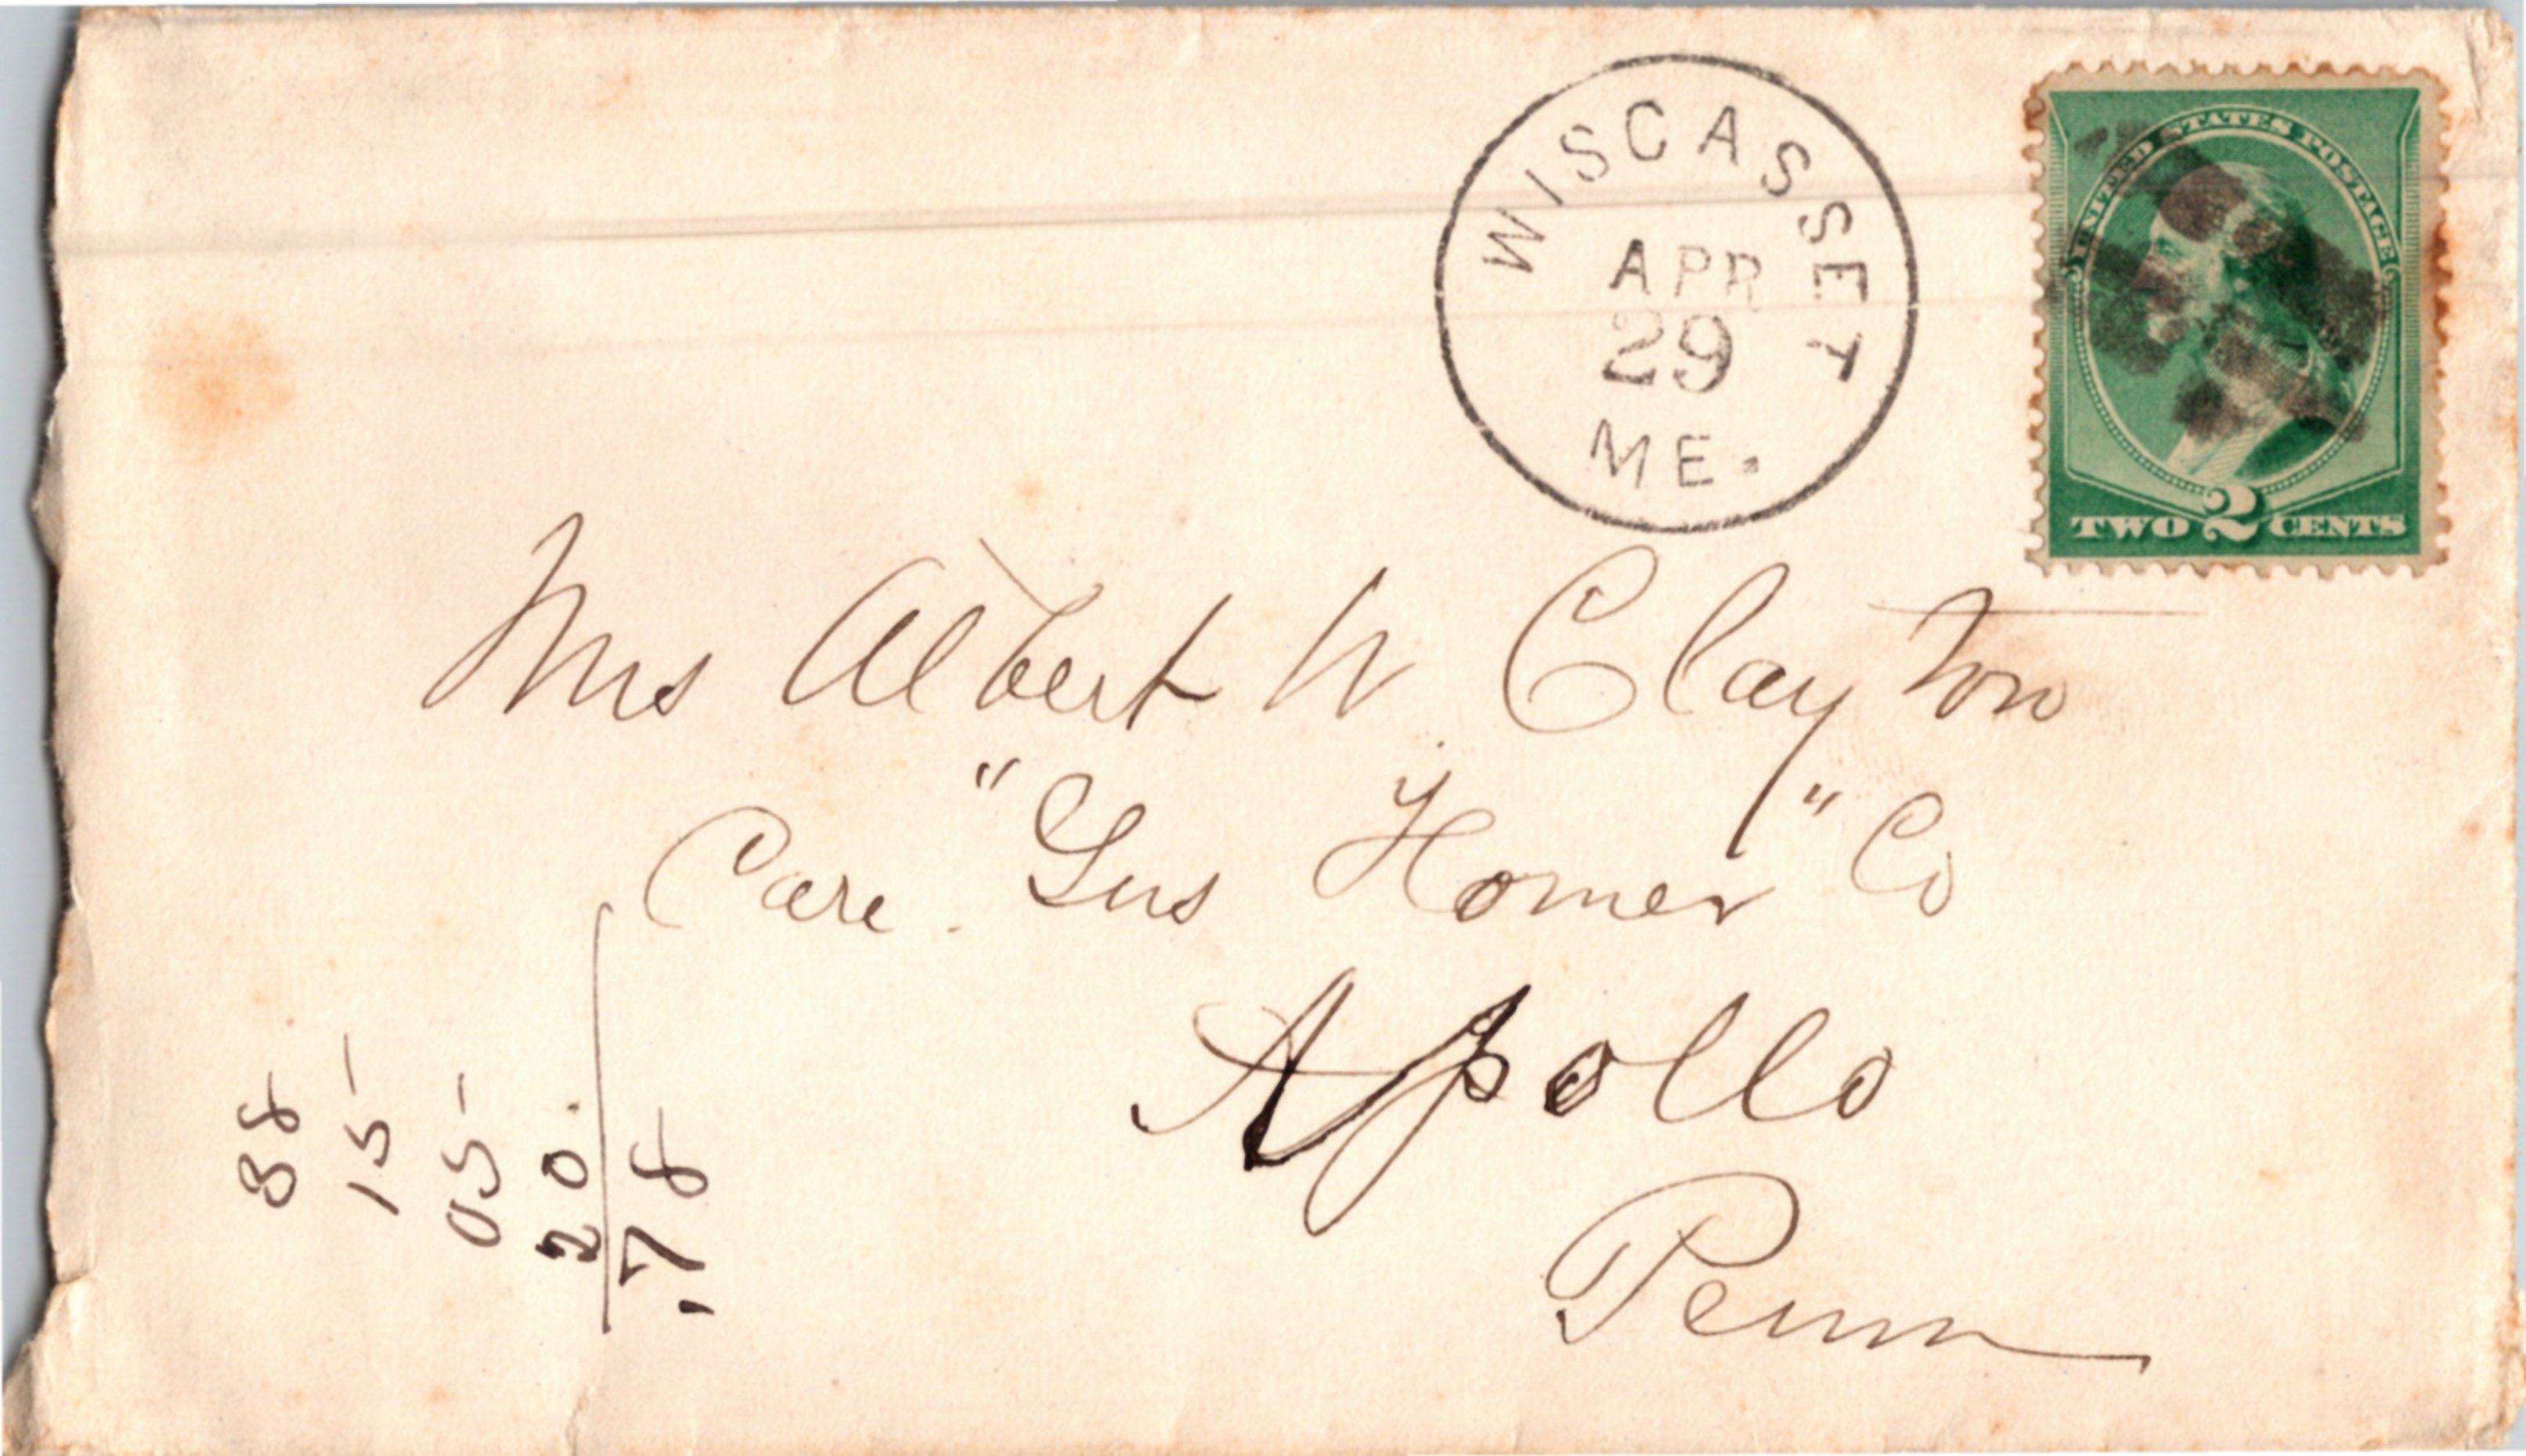 WISCASSET
APR
29
ME.
UNITED STATES POSTAGE
TWO 2 CENTS
Mrs Albert W. Clayton
Care. "Gus Homer" Co
Apollo
Penn
38
15
05
20.
.78